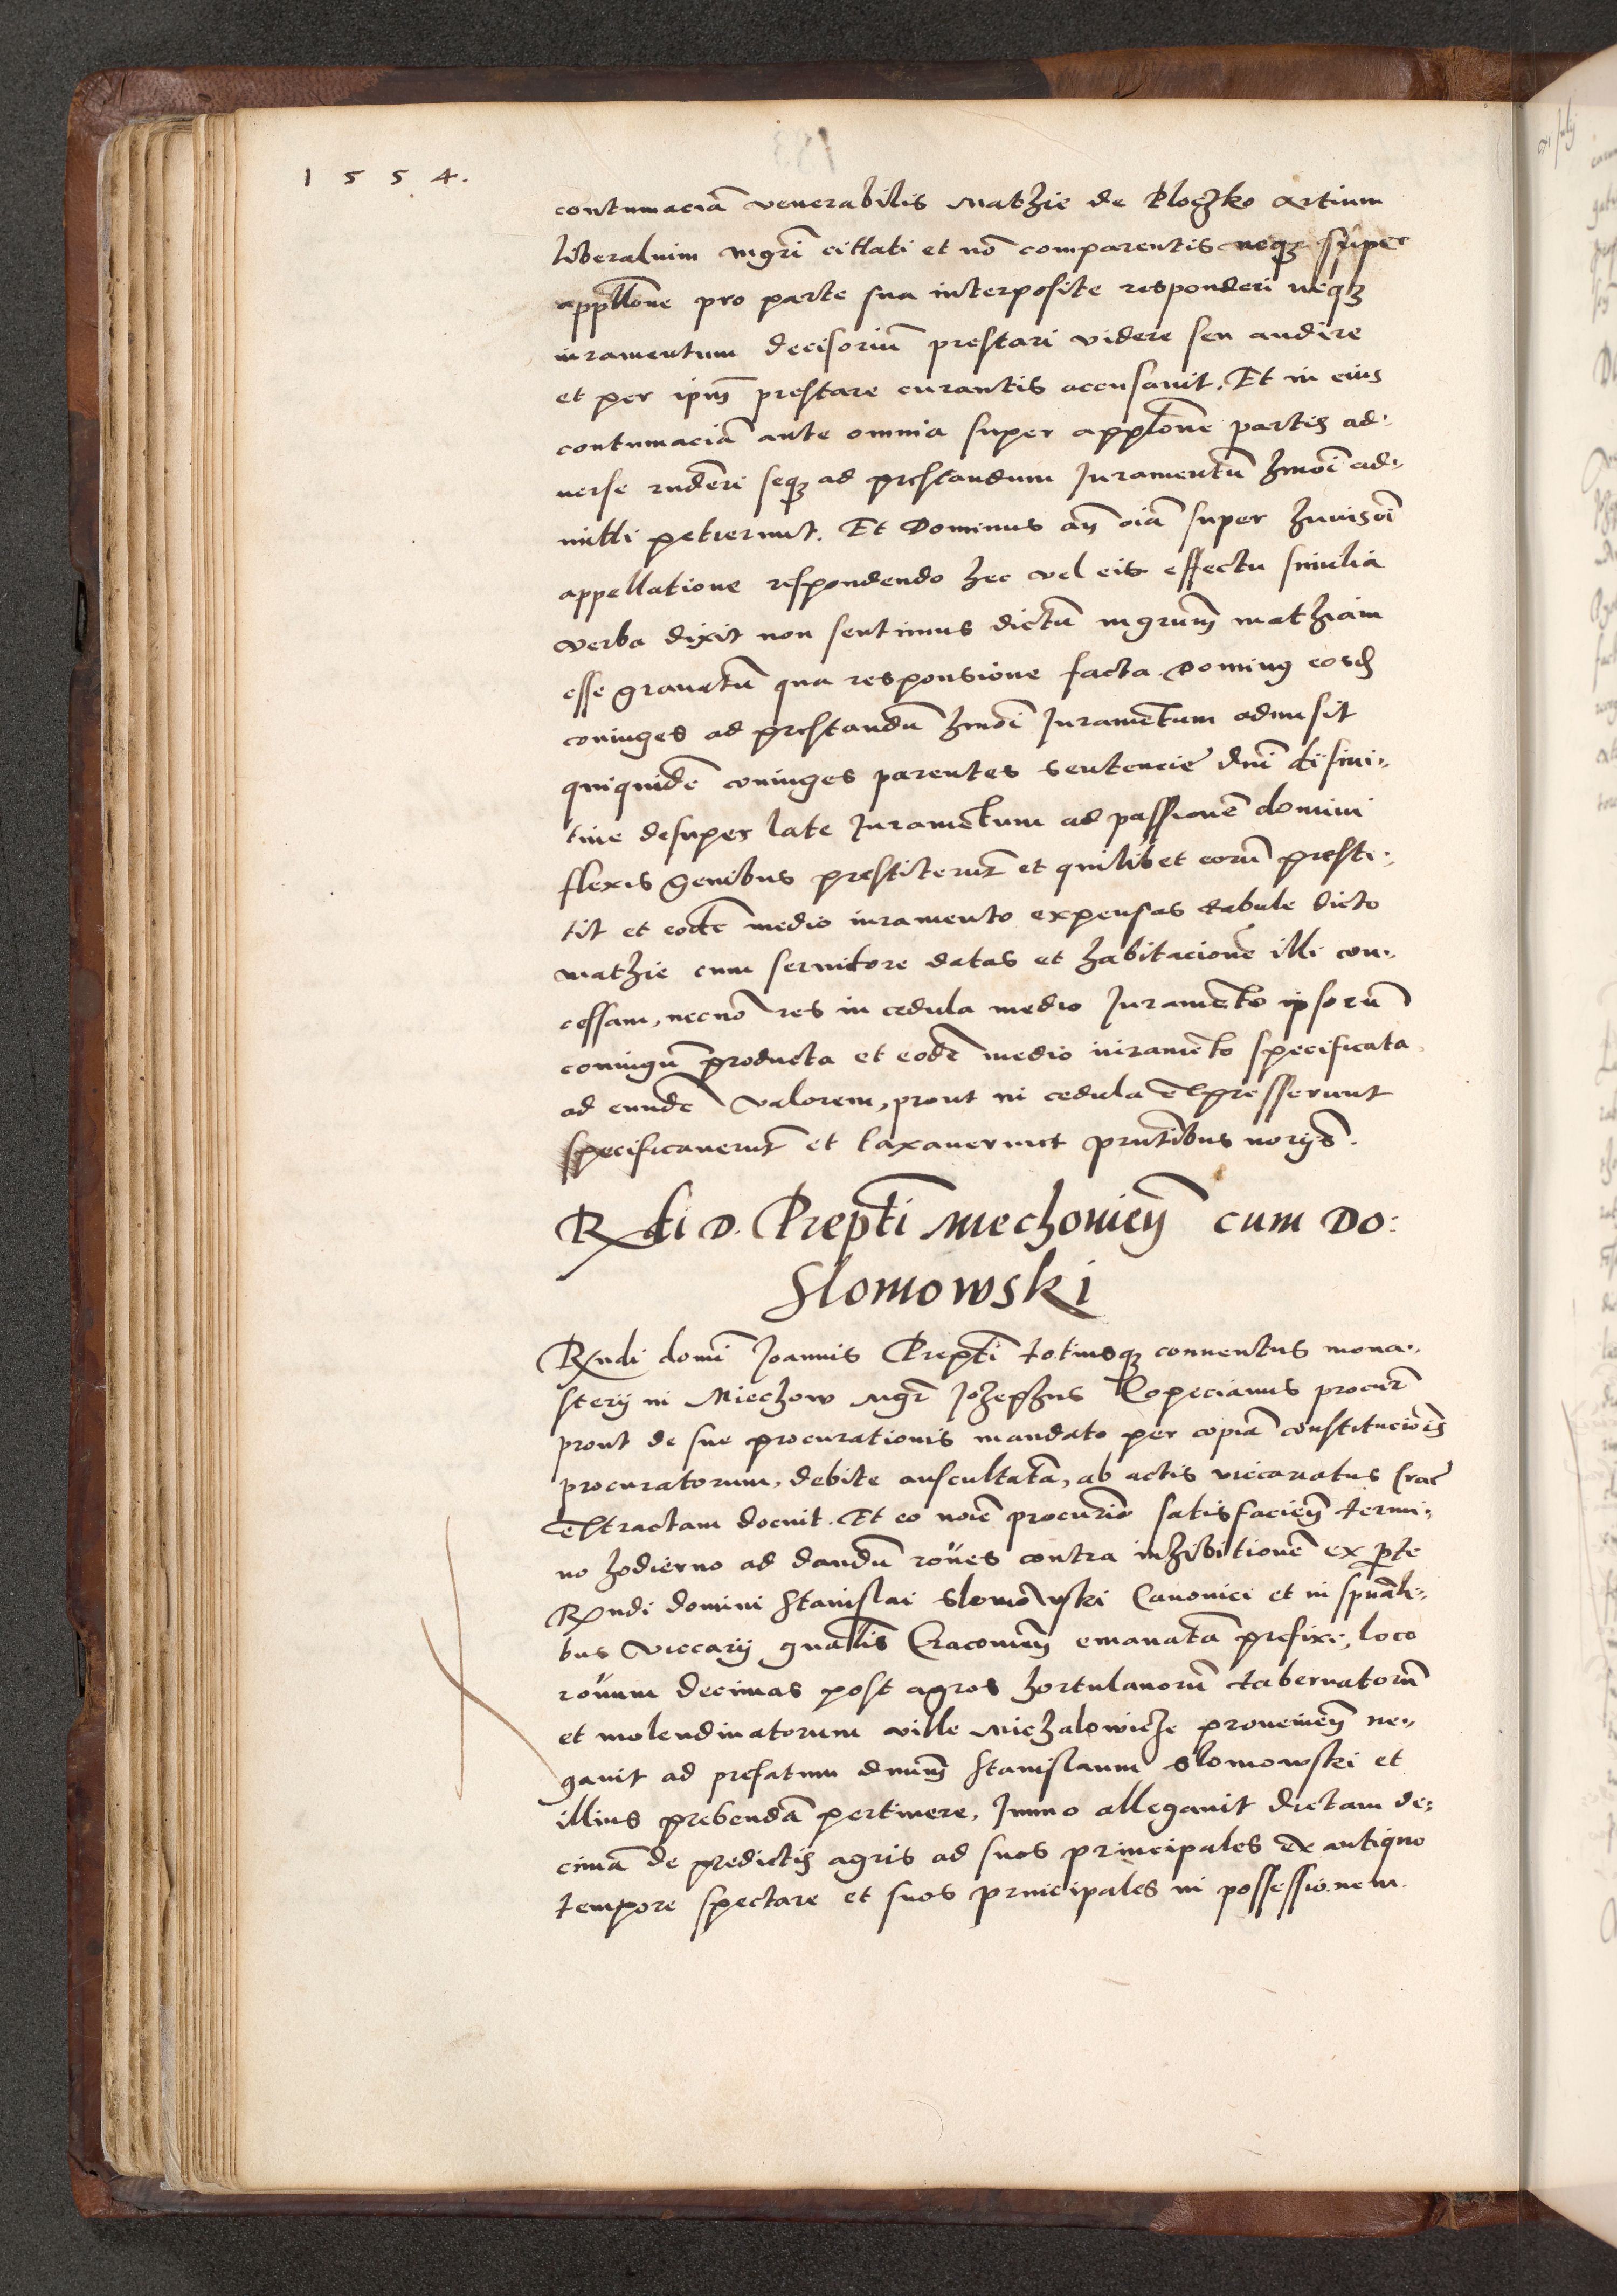 1 5 5 4.
contumaciā venerabilis Mathie de Ploczko Artium
liberalium mgrī cittati et nō comparentis neqʒ super
appllōne pro parte sua interposite responderi neqʒ
iuramentum decisoriū prestari videre seu audire
et per ipm̄ prestare curantis accusavit. Et in eius
contumaciā ante omnia super appllōne partis ad:
verse rnderi seqʒ ad prestandum Juramentū hmōi ad:
mitti petierunt. Et Dominus an̄ oīa super huiusōi
appellatione respondendo hec vel eis effectu similia
verba dixit non sentimus dictū mgrum̄ mathiam
esse gravatū qua responsione facta Dominus eosd
coniuges ad prestandū hmōi Juramentum admisit
quiquidē coniuges parentes sentencie dnī difini:
tive desuper late Juramentum ad passionē domini
flexis genibus prestiterunt et quilibet eorū presti:
tit et eodē medio iuramento expensas tabule dicto
mathie cum servitore datas et habitacionē illi con:
cessam, necnō res in cedula medio Juramento ipsorū
coniugū producta et eodē medio iuramēto specificata
ad eundē valorem, prout in cedula expresserunt
specificaverunt et taxaverunt prntibus norys̄.
Rndi D. Prepti Miechovien̄ cum Do:
Slomowski
Rndi domī Joannis Prepti totiusqʒ conventus mona:
stery in Miechow Mgr̄ Jozephus Copecianus procur̄
prout de sue procurationis mandato per copiā constitucionis
procuratorum, debite auscultatā, ab actis vicariatus Crac̄
extractam docuit. Et eo noīe procur̄io satisfacien̄ termi:
no hodierno ad dandū rōnes contra inhibitionē ex pte
Rndi domini Stanislai Slomowski Canonici et in spūali:
bus Vicarij gnalis Cracovien̄ emanatā prefixi, loco
rōnum decimas post agros hortulanorū tabernatorū
et molendinatorum ville Michalowicze provenien̄ ne:
gavit ad prefatum dnum̄ Stanislaum Slomowski et
illius prebendā pertinere, Jmmo allegavit dictam de:
cimā de predictis agris ad suos principales ex antiquo
tempore spectare et suos principales in possessionem